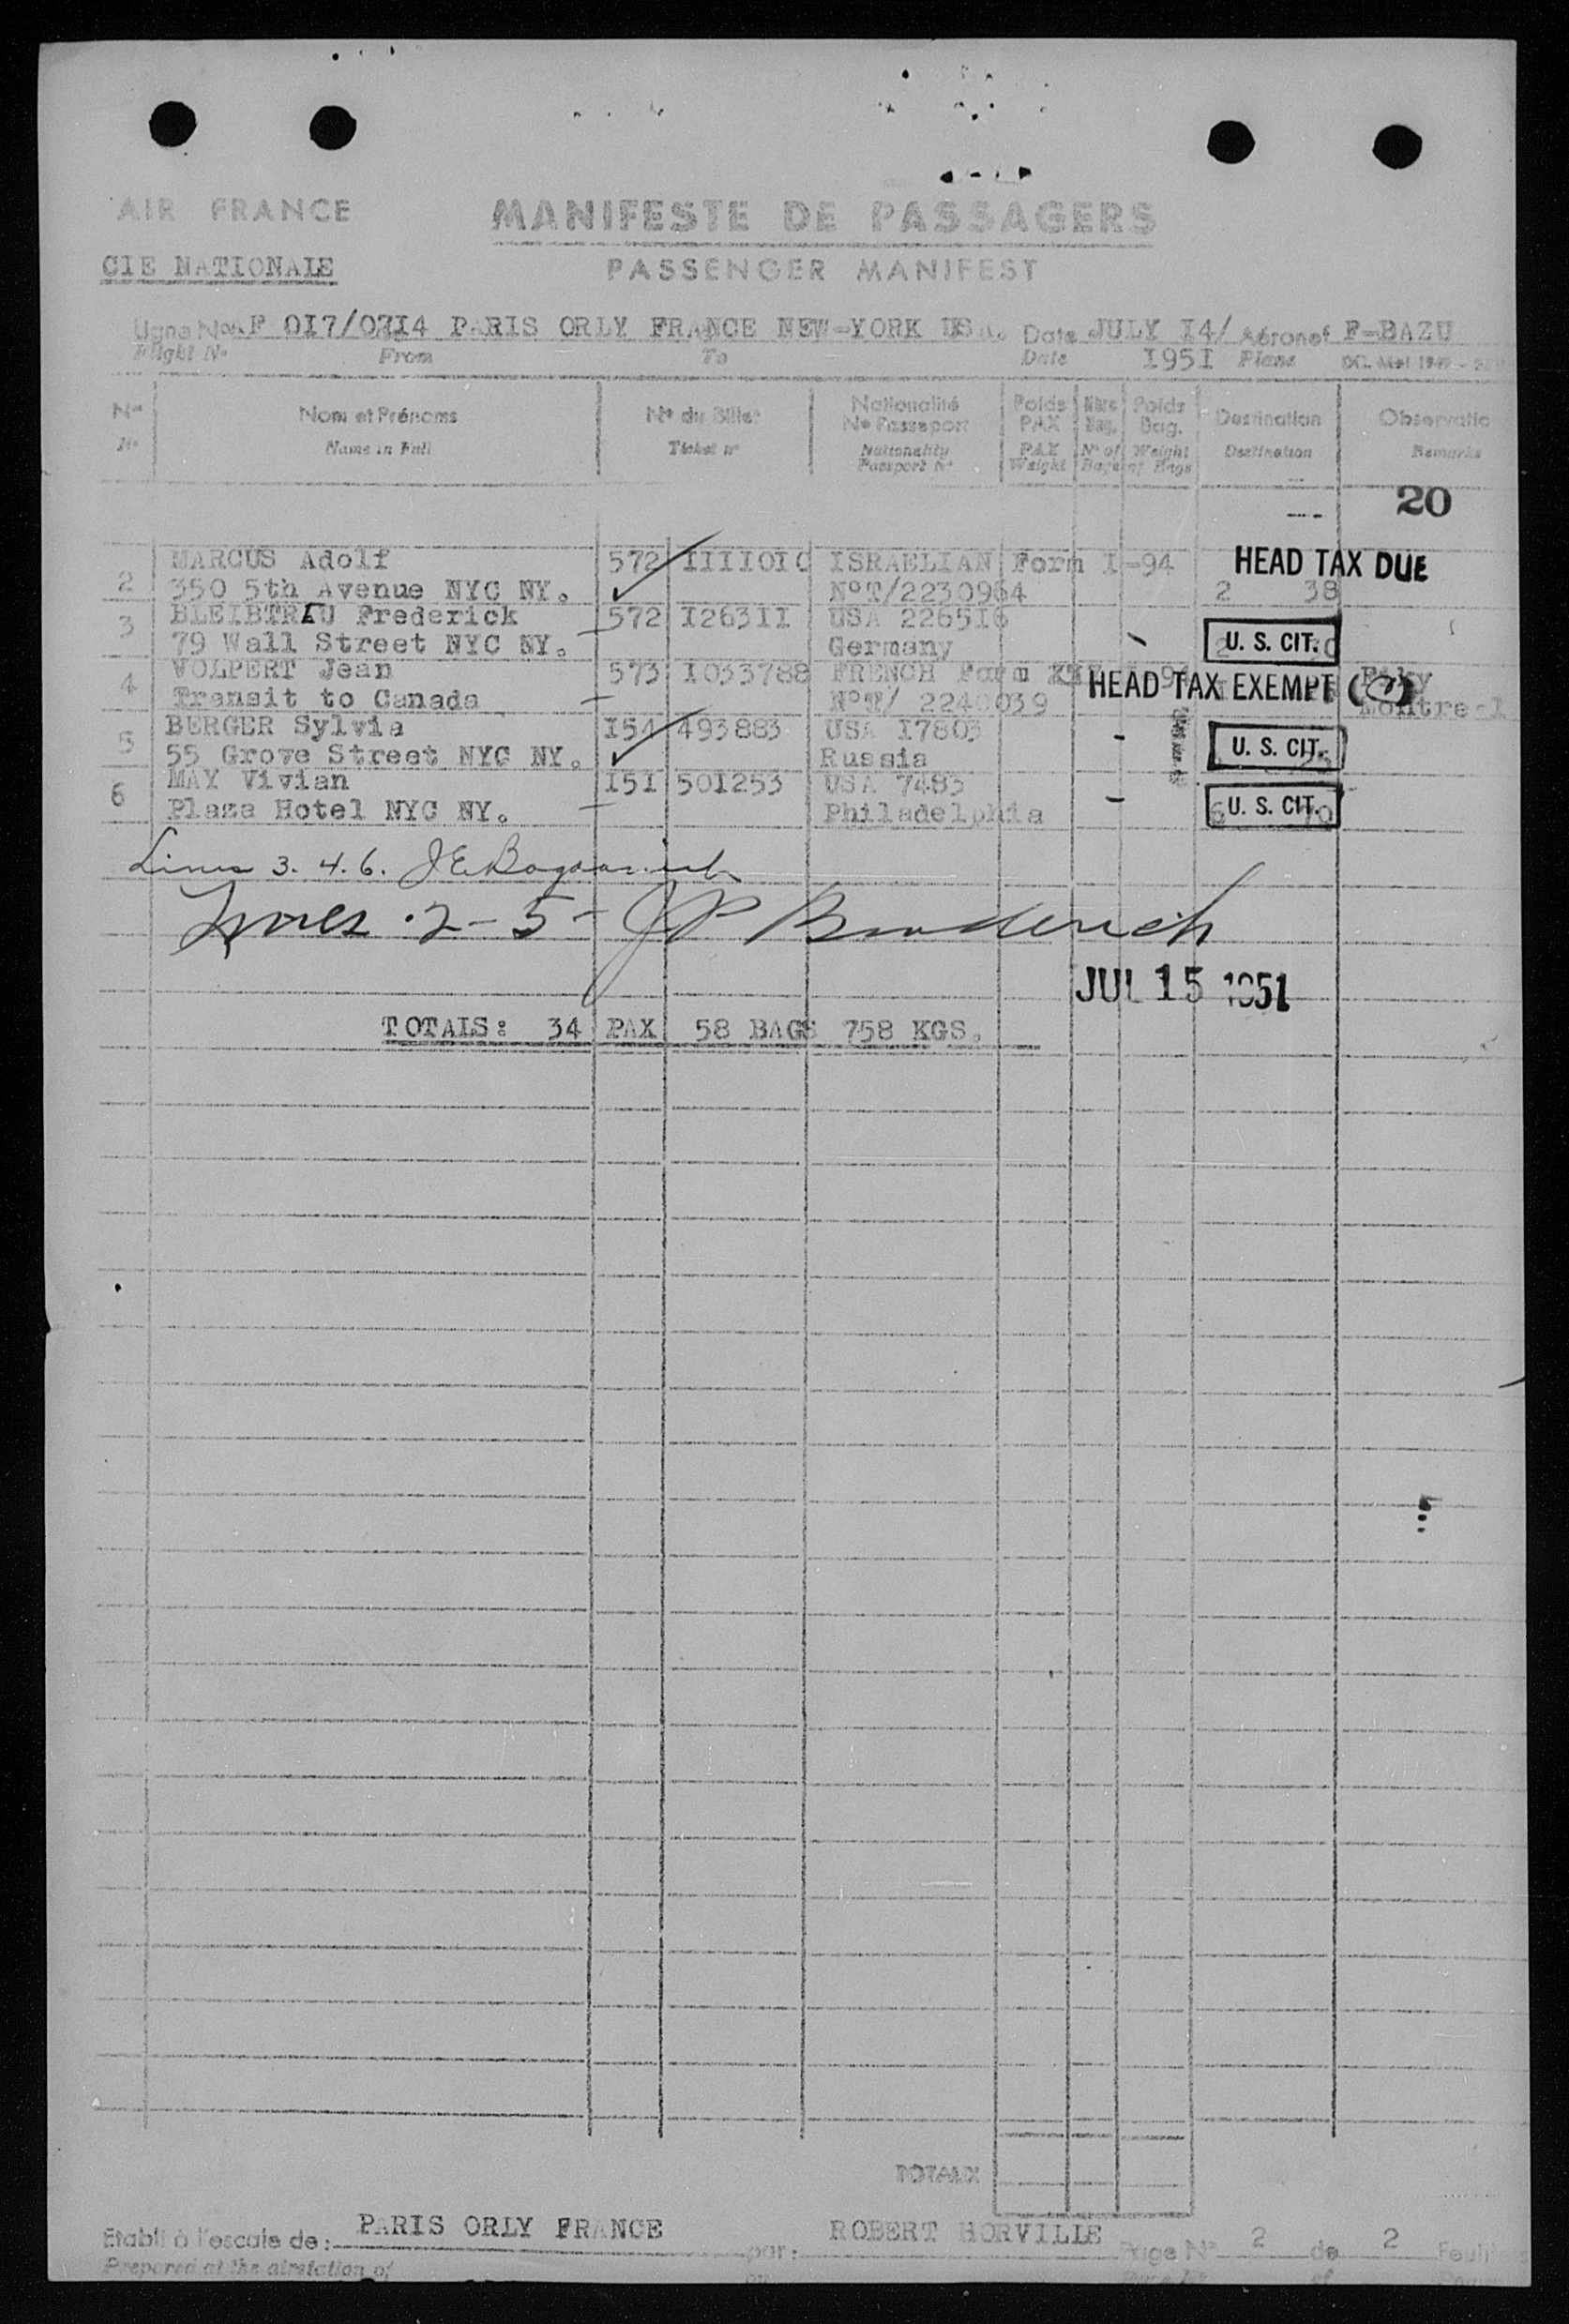 AIR FRANCE
MANIFESTE DE PASSAGERS
CIE NATIONALE
PASSENGER MANIFEST
Ligne No AF 017/0714 PARIS ORLY FRANCE NEW-YORK USA. Date JULY 14/ Aéronef F-BAZU
Flight No From To Date 1951 Plane
No Nom et Prénoms No du Billet Nationalité No Passeport Poids PAX Nbre Bag. Poids Bag. Destination Observatio
No Name in Full Ticket no Nationality Passport No PAX Weight No of Bags Weight of Bags Destination Remarks
20
MARCUS Adolf 572 1111010 ISRAELIAN Form I-94 HEAD TAX DUE
2 350 5th Avenue NYC NY. NoT/2230964 2 38
BLEIBTREU Frederick 572 126311 USA 226516
3 79 Wall Street NYC NY. Germany U. S. CIT.
VOLPERT Jean 573 1033788 FRENCH Form
4 Transit to Canada NoT/ 2240039 HEAD TAX EXEMPT Montreal
BERGER Sylvia 154 493883 USA 17803
5 55 Grove Street NYC NY. Russia U. S. CIT.
MAY Vivian 151 501253 USA 7483
6 Plaza Hotel NYC NY. Philadelphia U. S. CIT.
Lines 3. 4. 6.
Lines 2-5- JP Broderick
JUL 15 1951
TOTALS: 34 PAX 58 BAGS 758 KGS.
TOTAUX
Etabli à l'escale de: PARIS ORLY FRANCE par: ROBERT HORVILLE Page No 2 de 2
Prepared at the airstation of